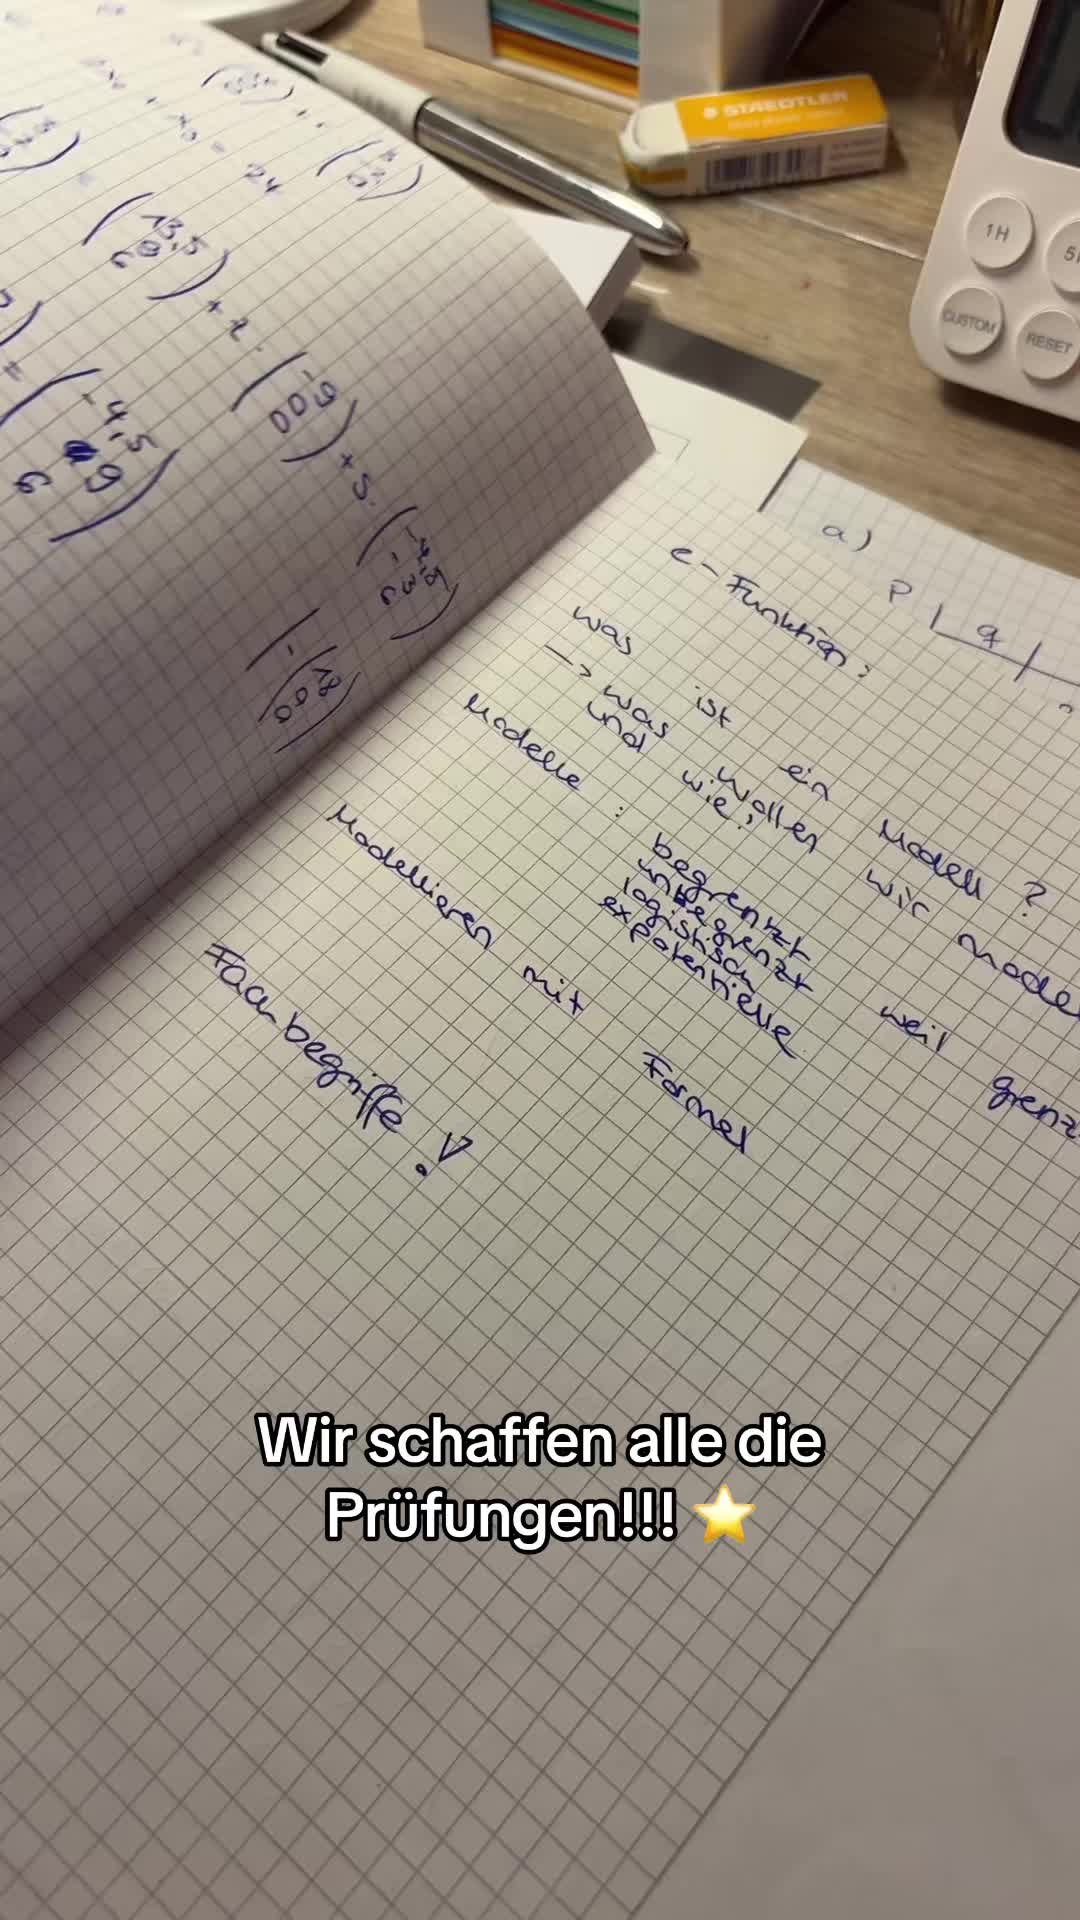 STAEDTLER
1H
CUSTOM
RESET
= 24
( 13,5
0
6 ) + r · ( -9
0
0 ) + s · ( -4,5
-3
6 )
= ( -4,5
9
6 )
- ( 18
0
0 )
a)
P | q |
e-Funktion:
was ist ein Modell ?
-> was wollen wir
und wie?
Modelle : begrentzt
unbegrenzt
logistisch
expotentielle
weil
Modellieren mit Formel
Fachbegriffe !
Wir schaffen alle die
Prüfungen!!! ⭐